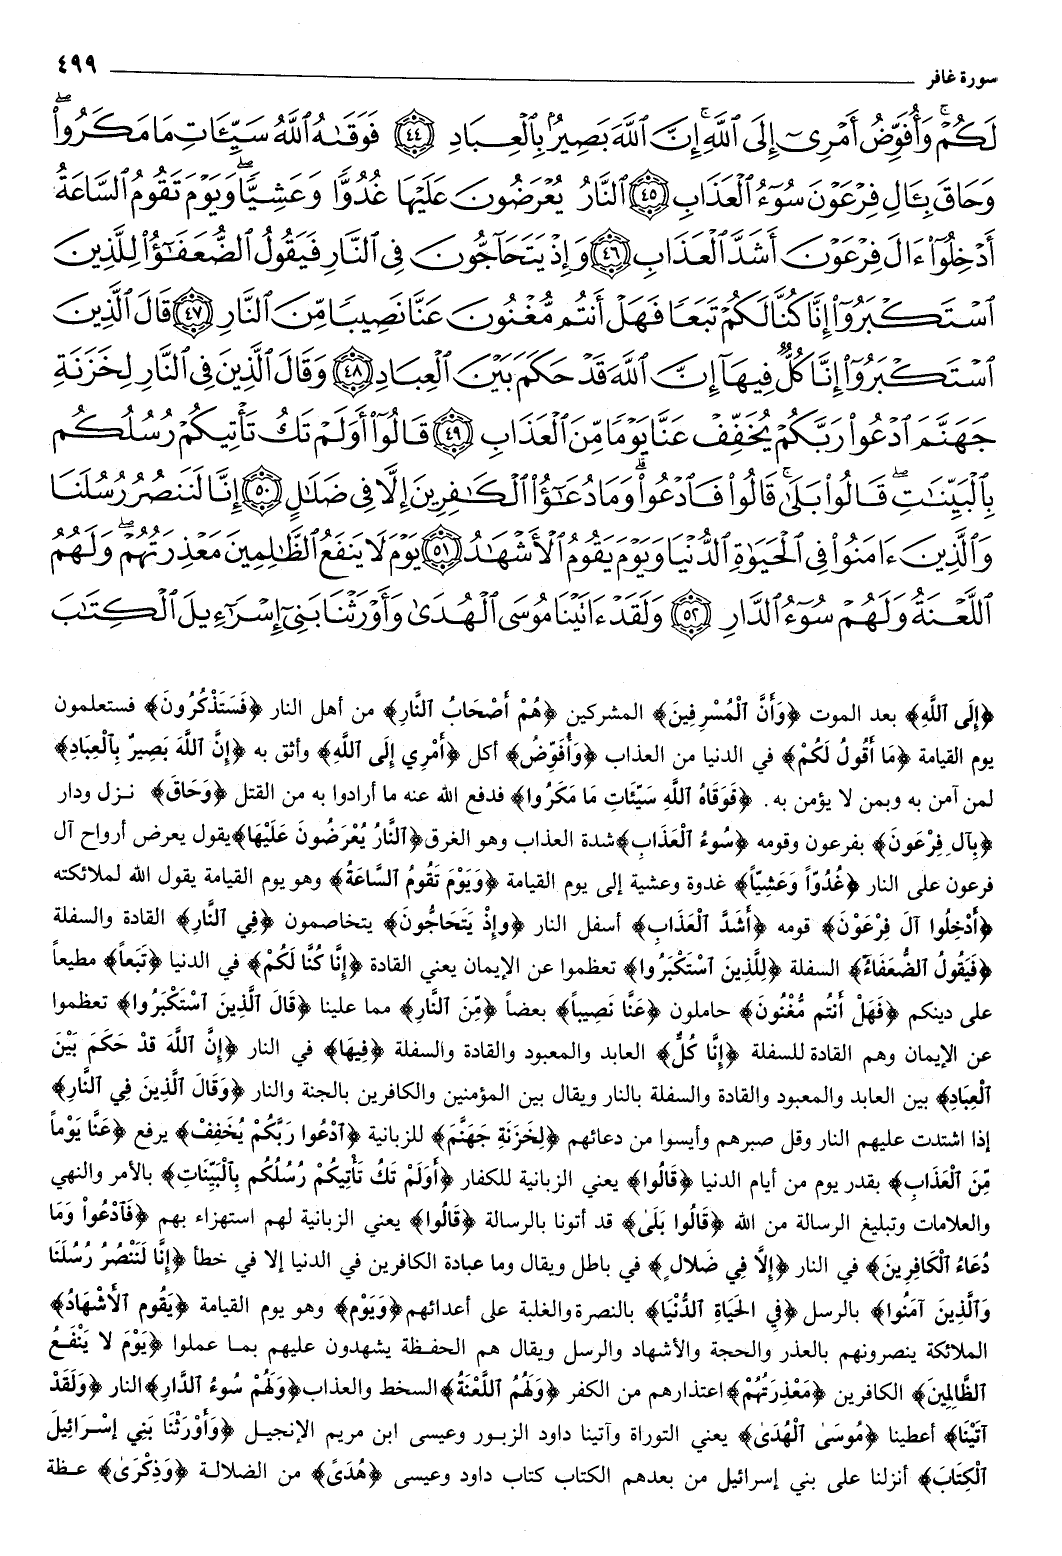 سورة غافر ٤٩٩
لَكُمْ وَأُفَوِّضُ أَمْرِىٓ إِلَى ٱللَّهِ إِنَّ ٱللَّهَ بَصِيرٌۢ بِٱلْعِبَادِ ٤٤ فَوَقَىٰهُ ٱللَّهُ سَيِّـَٔاتِ مَا مَكَرُوا۟ۖ
وَحَاقَ بِـَٔالِ فِرْعَوْنَ سُوٓءُ ٱلْعَذَابِ ٤٥ ٱلنَّارُ يُعْرَضُونَ عَلَيْهَا غُدُوًّا وَعَشِيًّاۖ وَيَوْمَ تَقُومُ ٱلسَّاعَةُ
أَدْخِلُوٓا۟ ءَالَ فِرْعَوْنَ أَشَدَّ ٱلْعَذَابِ ٤٦ وَإِذْ يَتَحَآجُّونَ فِى ٱلنَّارِ فَيَقُولُ ٱلضُّعَفَٰٓؤُا۟ لِلَّذِينَ
ٱسْتَكْبَرُوٓا۟ إِنَّا كُنَّا لَكُمْ تَبَعًا فَهَلْ أَنتُم مُّغْنُونَ عَنَّا نَصِيبًا مِّنَ ٱلنَّارِ ٤٧ قَالَ ٱلَّذِينَ
ٱسْتَكْبَرُوٓا۟ إِنَّا كُلٌّ فِيهَآ إِنَّ ٱللَّهَ قَدْ حَكَمَ بَيْنَ ٱلْعِبَادِ ٤٨ وَقَالَ ٱلَّذِينَ فِى ٱلنَّارِ لِخَزَنَةِ
جَهَنَّمَ ٱدْعُوا۟ رَبَّكُمْ يُخَفِّفْ عَنَّا يَوْمًا مِّنَ ٱلْعَذَابِ ٤٩ قَالُوٓا۟ أَوَلَمْ تَكُ تَأْتِيكُمْ رُسُلُكُم
بِٱلْبَيِّنَٰتِۖ قَالُوا۟ بَلَىٰۚ قَالُوا۟ فَٱدْعُوا۟ۗ وَمَا دُعَٰٓؤُا۟ ٱلْكَٰفِرِينَ إِلَّا فِى ضَلَٰلٍ ٥٠ إِنَّا لَنَنصُرُ رُسُلَنَا
وَٱلَّذِينَ ءَامَنُوا۟ فِى ٱلْحَيَوٰةِ ٱلدُّنْيَا وَيَوْمَ يَقُومُ ٱلْأَشْهَٰدُ ٥١ يَوْمَ لَا يَنفَعُ ٱلظَّٰلِمِينَ مَعْذِرَتُهُمْۖ وَلَهُمُ
ٱللَّعْنَةُ وَلَهُمْ سُوٓءُ ٱلدَّارِ ٥٢ وَلَقَدْ ءَاتَيْنَا مُوسَى ٱلْهُدَىٰ وَأَوْرَثْنَا بَنِىٓ إِسْرَٰٓءِيلَ ٱلْكِتَٰبَ
﴿إِلَى ٱللَّهِ﴾ بعد الموت ﴿وَأَنَّ ٱلْمُسْرِفِينَ﴾ المشركين ﴿هُمْ أَصْحَابُ ٱلنَّارِ﴾ من أهل النار ﴿فَسَتَذْكُرُونَ﴾ فستعلمون
يوم القيامة ﴿مَا أَقُولُ لَكُمْ﴾ في الدنيا من العذاب ﴿وَأُفَوِّضُ﴾ أكل ﴿أَمْرِي إِلَى ٱللَّهِ﴾ وأثق به ﴿إِنَّ ٱللَّهَ بَصِيرٌ بِٱلْعِبَادِ﴾
لمن آمن به وبمن لا يؤمن به. ﴿فَوَقَاهُ ٱللَّهُ سَيِّئَاتِ مَا مَكَرُوا﴾ فدفع الله عنه ما أرادوا به من القتل ﴿وَحَاقَ﴾ نزل ودار
﴿بِآلِ فِرْعَونَ﴾ بفرعون وقومه ﴿سُوءُ ٱلْعَذَابِ﴾ شدة العذاب وهو الغرق ﴿ٱلنَّارُ يُعْرَضُونَ عَلَيْهَا﴾ يقول يعرض أرواح آل
فرعون على النار ﴿غُدُوّاً وَعَشِيّاً﴾ غدوة وعشية إلى يوم القيامة ﴿وَيَوْمَ تَقُومُ ٱلسَّاعَةُ﴾ وهو يوم القيامة يقول الله لملائكته
﴿أَدْخِلُوا آلَ فِرْعَوْنَ﴾ قومه ﴿أَشَدَّ ٱلْعَذَابِ﴾ أسفل النار ﴿وإِذْ يَتَحَاجُّونَ﴾ يتخاصمون ﴿فِي ٱلنَّارِ﴾ القادة والسفلة
﴿فَيَقُولُ ٱلضُّعَفَاءُ﴾ السفلة ﴿لِلَّذِينَ ٱسْتَكْبَرُوا﴾ تعظموا عن الإيمان يعني القادة ﴿إِنَّا كُنَّا لَكُمْ﴾ في الدنيا ﴿تَبَعاً﴾ مطيعاً
على دينكم ﴿فَهَلْ أَنتُم مُّغْنُونَ﴾ حاملون ﴿عَنَّا نَصِيباً﴾ بعضاً ﴿مِّنَ ٱلنَّارِ﴾ مما علينا ﴿قَالَ ٱلَّذِينَ ٱسْتَكْبَرُوا﴾ تعظموا
عن الإيمان وهم القادة للسفلة ﴿إِنَّا كُلٌّ﴾ العابد والمعبود والقادة والسفلة ﴿فِيهَا﴾ في النار ﴿إِنَّ ٱللَّهَ قَدْ حَكَمَ بَيْنَ
ٱلْعِبَادِ﴾ بين العابد والمعبود والقادة والسفلة بالنار ويقال بين المؤمنين والكافرين بالجنة والنار ﴿وَقَالَ ٱلَّذِينَ فِي ٱلنَّارِ﴾
إذا اشتدت عليهم النار وقل صبرهم وأيسوا من دعائهم ﴿لِخَزَنَةِ جَهَنَّمَ﴾ للزبانية ﴿ٱدْعُوا رَبَّكُمْ يُخَفِفْ﴾ يرفع ﴿عَنَّا يَوْماً
مِّنَ ٱلْعَذَابِ﴾ بقدر يوم من أيام الدنيا ﴿قَالُوا﴾ يعني الزبانية للكفار ﴿أَوَلَمْ تَكُ تَأْتِيكُمْ رُسُلُكُم بِٱلْبَيِّنَاتِ﴾ بالأمر والنهي
والعلامات وتبليغ الرسالة من الله ﴿قَالُوا بَلَىٰ﴾ قد أتونا بالرسالة ﴿قَالُوا﴾ يعني الزبانية لهم استهزاء بهم ﴿فَٱدْعُواْ وَمَا
دُعَاءُ ٱلْكَافِرِينَ﴾ في النار ﴿إِلَّا فِي ضَلالٍ﴾ في باطل ويقال وما عبادة الكافرين في الدنيا إلا في خطأ ﴿إِنَّا لَنَنْصُرُ رُسُلَنَا
وَٱلَّذِينَ آمَنُوا﴾ بالرسل ﴿فِي الحَيَاةِ ٱلدُّنْيَا﴾ بالنصرة والغلبة على أعدائهم ﴿وَيَوْمَ﴾ وهو يوم القيامة ﴿يَقُومُ ٱلْأَشْهَادُ﴾
الملائكة ينصرونهم بالعذر والحجة والأشهاد والرسل ويقال هم الحفظة يشهدون عليهم بما عملوا ﴿يَوْمَ لا يَنْفَعُ
ٱلظَّالِمِينَ﴾ الكافرين ﴿مَعْذِرَتُهُمْ﴾ اعتذارهم من الكفر ﴿وَلَهُمُ اللَّعْنَةُ﴾ السخط والعذاب ﴿وَلَهُمْ سُوءُ ٱلدَّارِ﴾ النار ﴿وَلَقَدْ
آتَيْنَا﴾ أعطينا ﴿مُوسَىٰ ٱلْهُدَىٰ﴾ يعني التوراة وآتينا داود الزبور وعيسى ابن مريم الإنجيل ﴿وَأَوْرَثْنَا بَنِي إِسْرَائِيلَ
ٱلْكِتَابَ﴾ أنزلنا على بني إسرائيل من بعدهم الكتاب كتاب داود وعيسى ﴿هُدَىً﴾ من الضلالة ﴿وَذِكْرَىٰ﴾ عظة